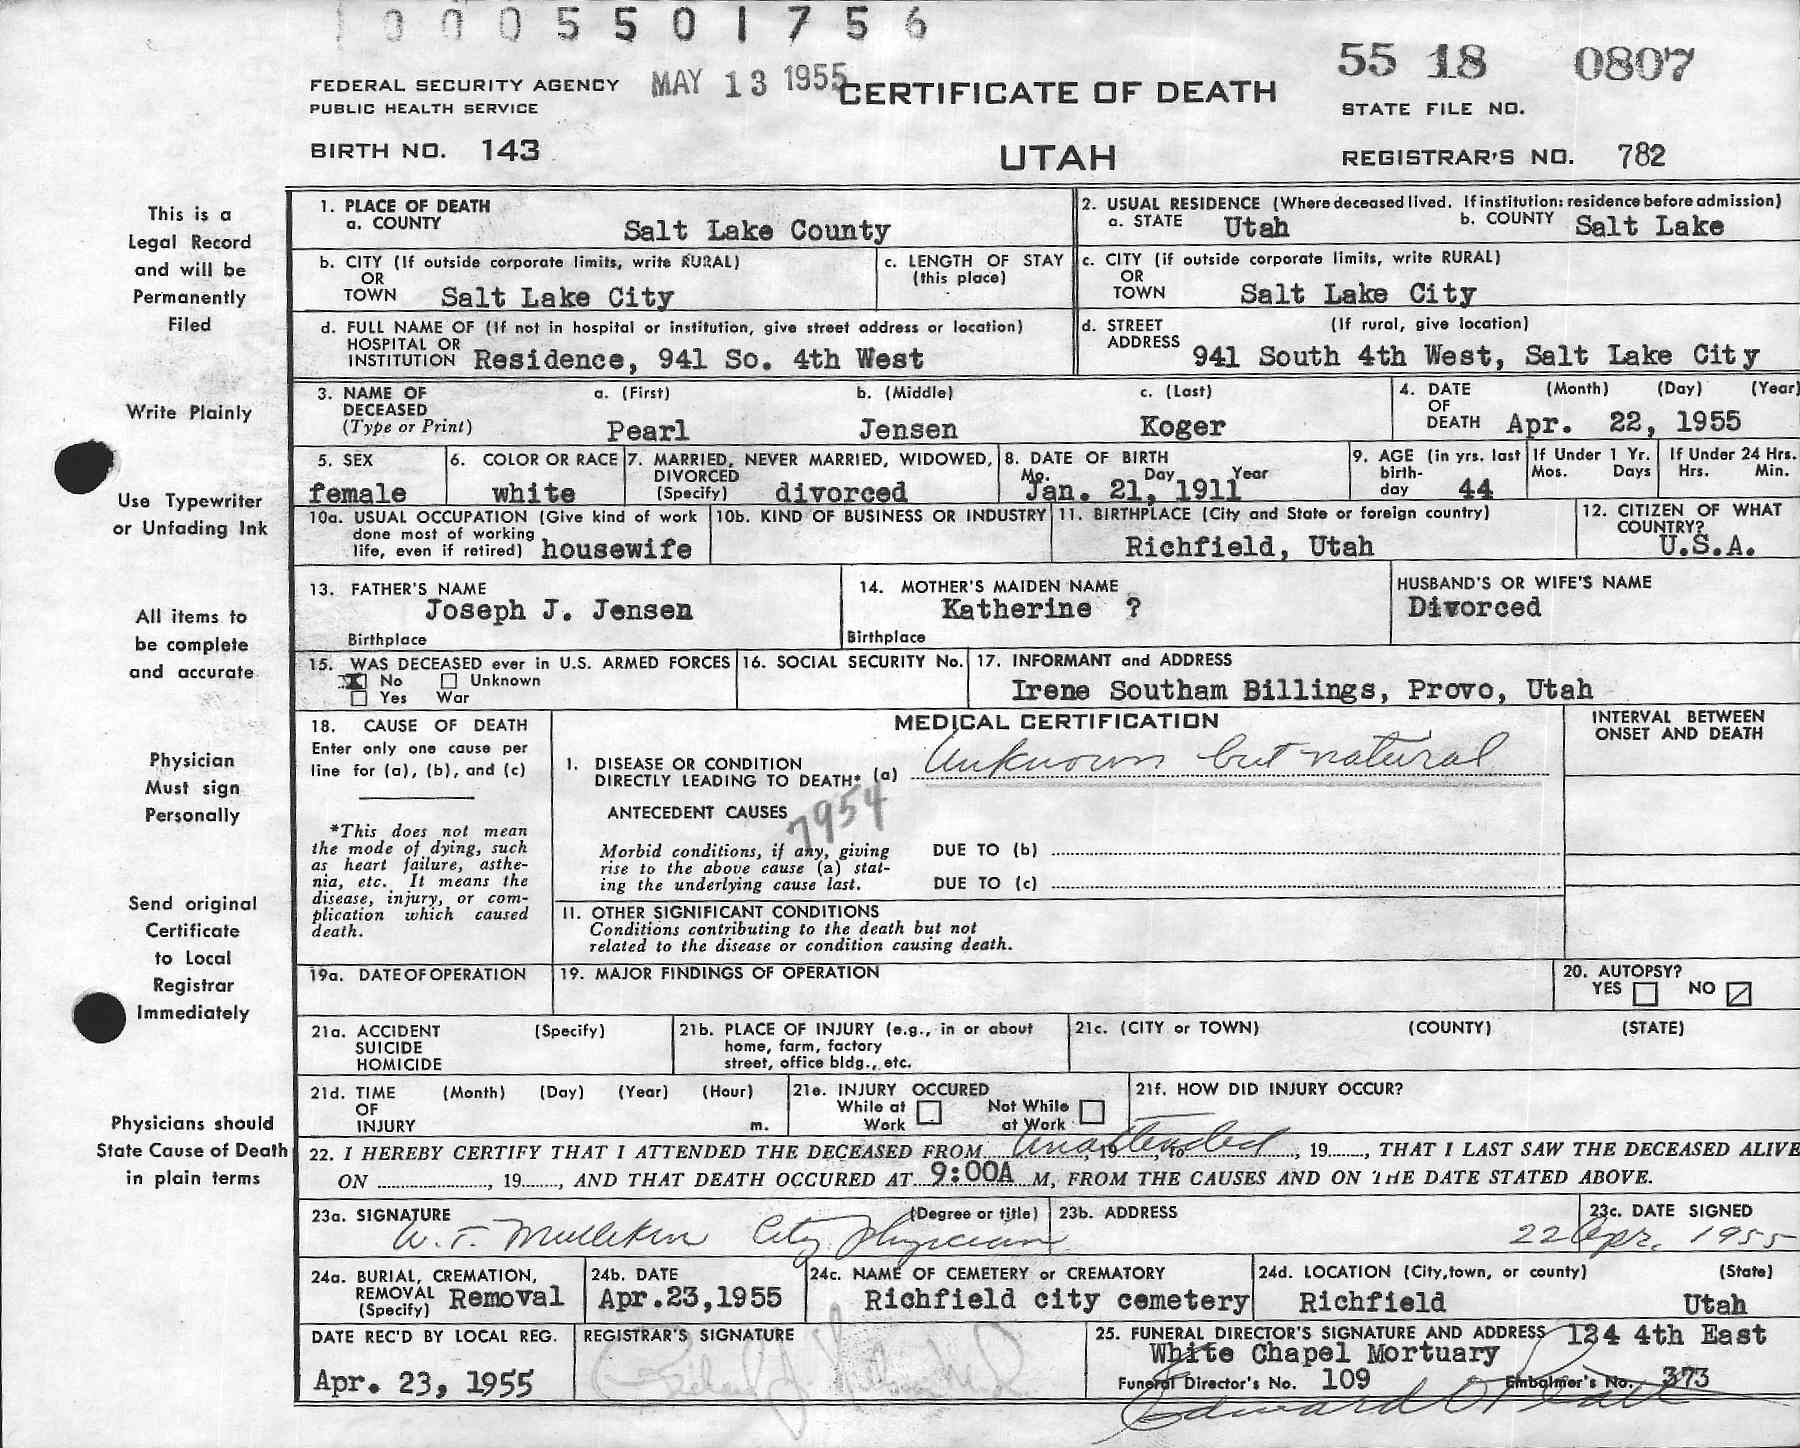 1 0 0 0 5 5 0 1 7 5 6
55 18 0807
FEDERAL SECURITY AGENCY MAY 13 1955 CERTIFICATE OF DEATH
PUBLIC HEALTH SERVICE
STATE FILE NO.
BIRTH NO. 143 UTAH REGISTRAR'S NO. 782
This is a
Legal Record
and will be
Permanently
Filed
Write Plainly
Use Typewriter
or Unfading Ink
All items to
be complete
and accurate
Physician
Must sign
Personally
Send original
Certificate
to Local
Registrar
Immediately
Physicians should
State Cause of Death
in plain terms
1. PLACE OF DEATH
a. COUNTY Salt Lake County
2. USUAL RESIDENCE (Where deceased lived. If institution: residence before admission)
a. STATE Utah b. COUNTY Salt Lake
b. CITY (If outside corporate limits, write RURAL)
OR
TOWN Salt Lake City
c. LENGTH OF STAY
(this place)
c. CITY (if outside corporate limits, write RURAL)
OR
TOWN Salt Lake City
d. FULL NAME OF (If not in hospital or institution, give street address or location)
HOSPITAL OR
INSTITUTION Residence, 941 So. 4th West
d. STREET (If rural, give location)
ADDRESS 941 South 4th West, Salt Lake City
3. NAME OF a. (First) b. (Middle) c. (Last)
DECEASED
(Type or Print) Pearl Jensen Koger
4. DATE (Month) (Day) (Year)
OF
DEATH Apr. 22, 1955
5. SEX
female
6. COLOR OR RACE
white
7. MARRIED, NEVER MARRIED, WIDOWED,
DIVORCED
(Specify) divorced
8. DATE OF BIRTH
Mo. Day Year
Jan. 21, 1911
9. AGE (in yrs. last
birth-
day 44
If Under 1 Yr.
Mos. Days
If Under 24 Hrs.
Hrs. Min.
10a. USUAL OCCUPATION (Give kind of work
done most of working
life, even if retired) housewife
10b. KIND OF BUSINESS OR INDUSTRY
11. BIRTHPLACE (City and State or foreign country)
Richfield, Utah
12. CITIZEN OF WHAT
COUNTRY?
U.S.A.
13. FATHER'S NAME
Joseph J. Jensen
Birthplace
14. MOTHER'S MAIDEN NAME
Katherine ?
Birthplace
HUSBAND'S OR WIFE'S NAME
Divorced
15. WAS DECEASED ever in U.S. ARMED FORCES
No Unknown
Yes War
16. SOCIAL SECURITY No.
17. INFORMANT and ADDRESS
Irene Southam Billings, Provo, Utah
18. CAUSE OF DEATH
Enter only one cause per
line for (a), (b), and (c)
*This does not mean
the mode of dying, such
as heart failure, asthe-
nia, etc. It means the
disease, injury, or com-
plication which caused
death.
MEDICAL CERTIFICATION
INTERVAL BETWEEN
ONSET AND DEATH
1. DISEASE OR CONDITION
DIRECTLY LEADING TO DEATH* (a) Unknown but natural
ANTECEDENT CAUSES 7954
Morbid conditions, if any, giving
rise to the above cause (a) stat-
ing the underlying cause last.
DUE TO (b)
DUE TO (c)
11. OTHER SIGNIFICANT CONDITIONS
Conditions contributing to the death but not
related to the disease or condition causing death.
19a. DATE OF OPERATION
19. MAJOR FINDINGS OF OPERATION
20. AUTOPSY?
YES NO
21a. ACCIDENT (Specify)
SUICIDE
HOMICIDE
21b. PLACE OF INJURY (e.g., in or about
home, farm, factory
street, office bldg., etc.
21c. (CITY or TOWN) (COUNTY) (STATE)
21d. TIME (Month) (Day) (Year) (Hour)
OF
INJURY m.
21e. INJURY OCCURED
While at Not While
Work at Work
21f. HOW DID INJURY OCCUR?
22. I HEREBY CERTIFY THAT I ATTENDED THE DECEASED FROM Unattended, 19, to, 19, THAT I LAST SAW THE DECEASED ALIVE
ON, 19, AND THAT DEATH OCCURED AT 9:00A M, FROM THE CAUSES AND ON THE DATE STATED ABOVE.
23a. SIGNATURE (Degree or title)
W. T. Mulliken City Physician
23b. ADDRESS
23c. DATE SIGNED
22 Apr. 1955
24a. BURIAL, CREMATION,
REMOVAL
(Specify) Removal
24b. DATE
Apr.23,1955
24c. NAME OF CEMETERY or CREMATORY
Richfield city cemetery
24d. LOCATION (City, town, or county) (State)
Richfield Utah
DATE REC'D BY LOCAL REG.
Apr. 23, 1955
REGISTRAR'S SIGNATURE
25. FUNERAL DIRECTOR'S SIGNATURE AND ADDRESS 124 4th East
White Chapel Mortuary
Funeral Director's No. 109 Embalmer's No. 373
Edward